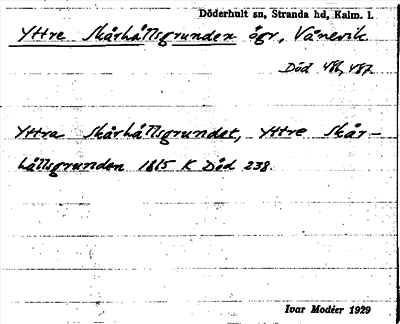 Döderhult sn, Stranda hd, Kalm. l.
Yttre Skårhållsgrunden ögr, Vånevik
Död 486, 487
Yttra Skårhållsgrundet, Yttre Skår-
hållsgrunden 1865 K Död 238.
Ivar Modéer 1929